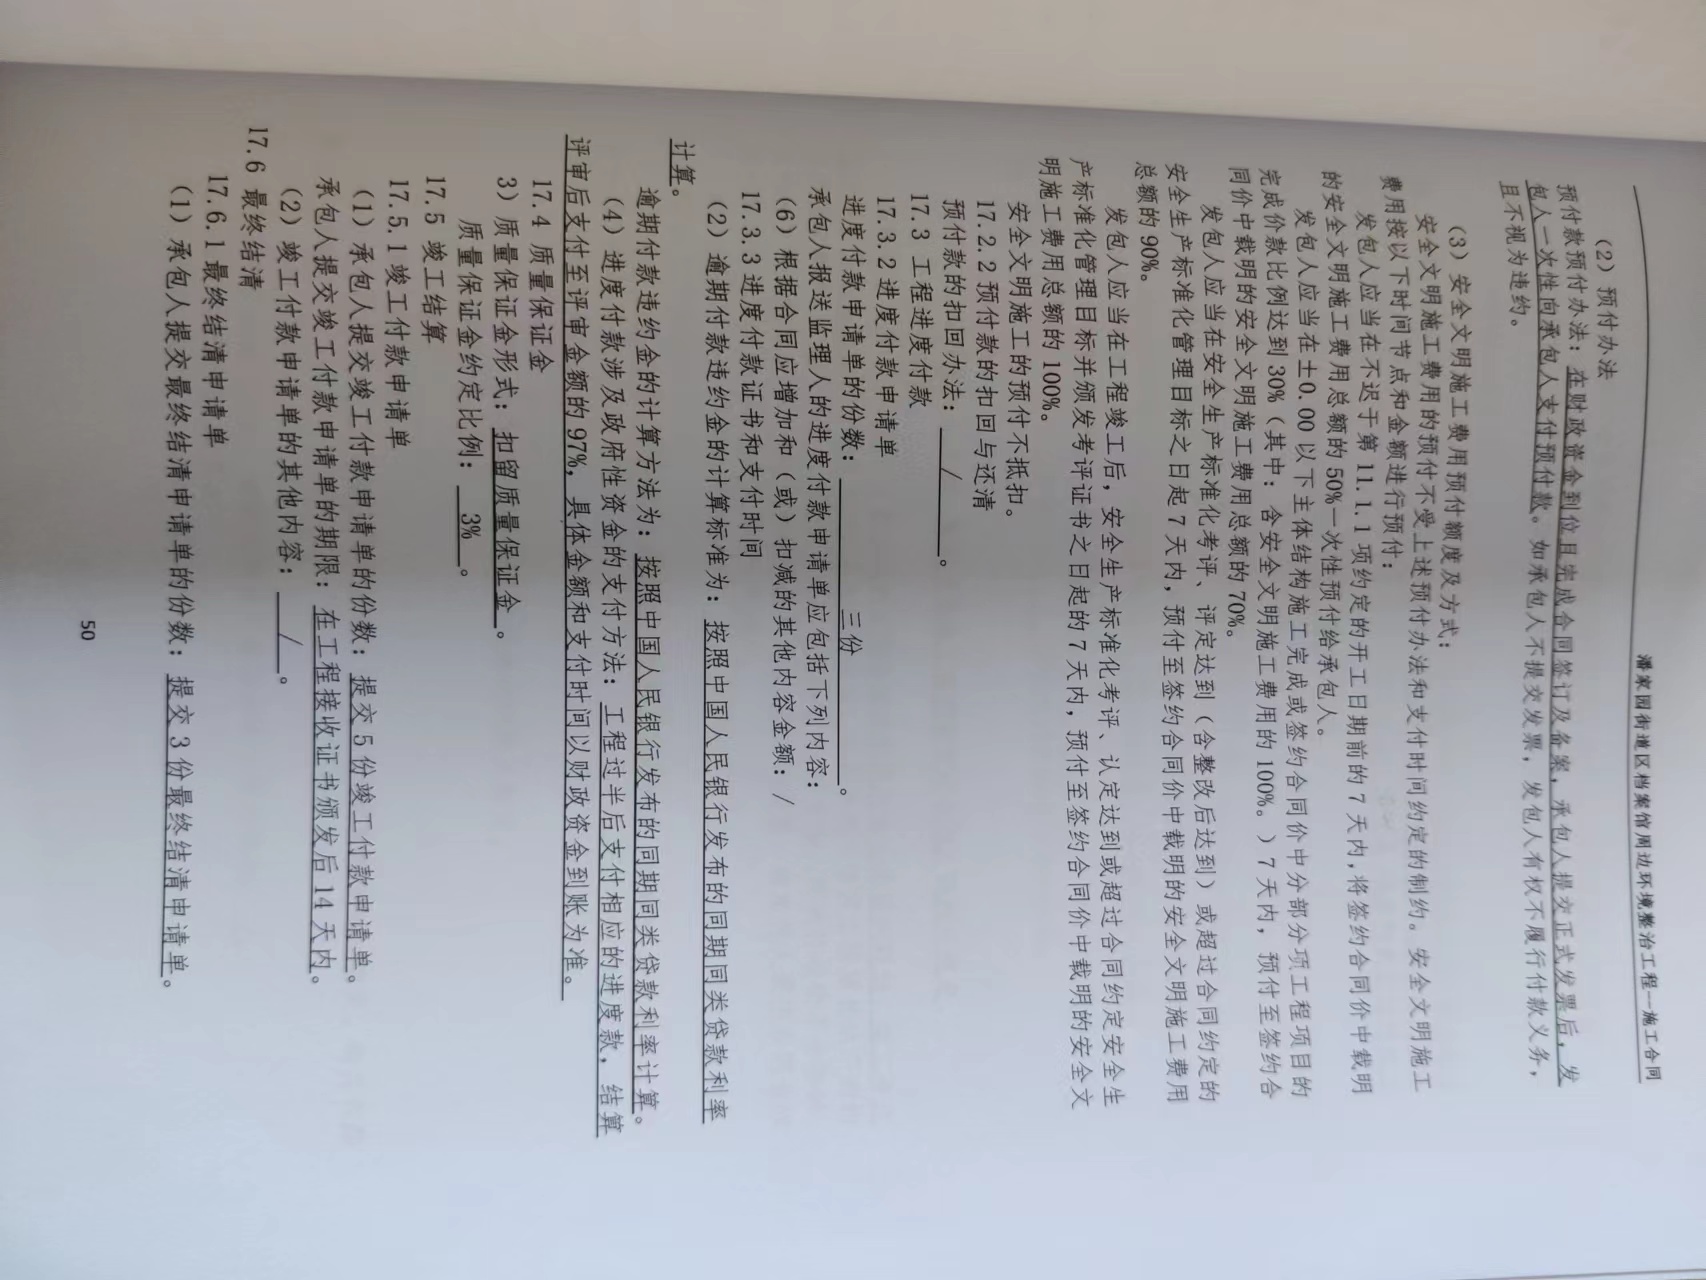 潘家园街道区档案馆周边环境整治工程—施工合同
（2）预付办法
预付款预付办法：在财政资金到位且完成合同签订及备案，承包人提交正式发票后，发
包人一次性向承包人支付预付款。如承包人不提交发票，发包人有权不履行付款义务，
且不视为违约。
（3）安全文明施工费用预付额度及方式：
安全文明施工费用的预付不受上述预付办法和支付时间约定的制约。安全文明施工
费用按以下时间节点和金额进行预付：
发包人应当在不迟于第 11.1.1 项约定的开工日期前的 7 天内，将签约合同价中载明
的安全文明施工费用总额的 50%一次性预付给承包人。
发包人应当在±0.00 以下主体结构施工完成或签约合同价中分部分项工程项目的
完成价款比例达到 30%（其中：含安全文明施工费用的 100%。）7 天内，预付至签约合
同价中载明的安全文明施工费用总额的 70%。
发包人应当在安全生产标准化考评、评定达到（含整改后达到）或超过合同约定的
安全生产标准化管理目标之日起 7 天内，预付至签约合同价中载明的安全文明施工费用
总额的 90%。
发包人应当在工程竣工后，安全生产标准化考评、认定达到或超过合同约定安全生
产标准化管理目标并颁发考评证书之日起的 7 天内，预付至签约合同价中载明的安全文
明施工费用总额的 100%。
安全文明施工的预付不抵扣。
17.2.2 预付款的扣回与还清
预付款的扣回办法： / 。
17.3 工程进度付款
17.3.2 进度付款申请单
进度付款申请单的份数： 三份 。
承包人报送监理人的进度付款申请单应包括下列内容：
（6）根据合同应增加和（或）扣减的其他内容金额：/
17.3.3 进度付款证书和支付时间
（2）逾期付款违约金的计算标准为：按照中国人民银行发布的同期同类贷款利率
计算。
逾期付款违约金的计算方法为：按照中国人民银行发布的同期同类贷款利率计算。
（4）进度付款涉及政府性资金的支付方法：工程过半后支付相应的进度款，结算
评审后支付至评审金额的 97%，具体金额和支付时间以财政资金到账为准。
17.4 质量保证金
3）质量保证金形式：扣留质量保证金。
质量保证金约定比例： 3% 。
17.5 竣工结算
17.5.1 竣工付款申请单
（1）承包人提交竣工付款申请单的份数：提交 5 份竣工付款申请单。
承包人提交竣工付款申请单的期限：在工程接收证书颁发后 14 天内。
（2）竣工付款申请单的其他内容： / 。
17.6 最终结清
17.6.1 最终结清申请单
（1）承包人提交最终结清申请单的份数：提交 3 份最终结清申请单。
50